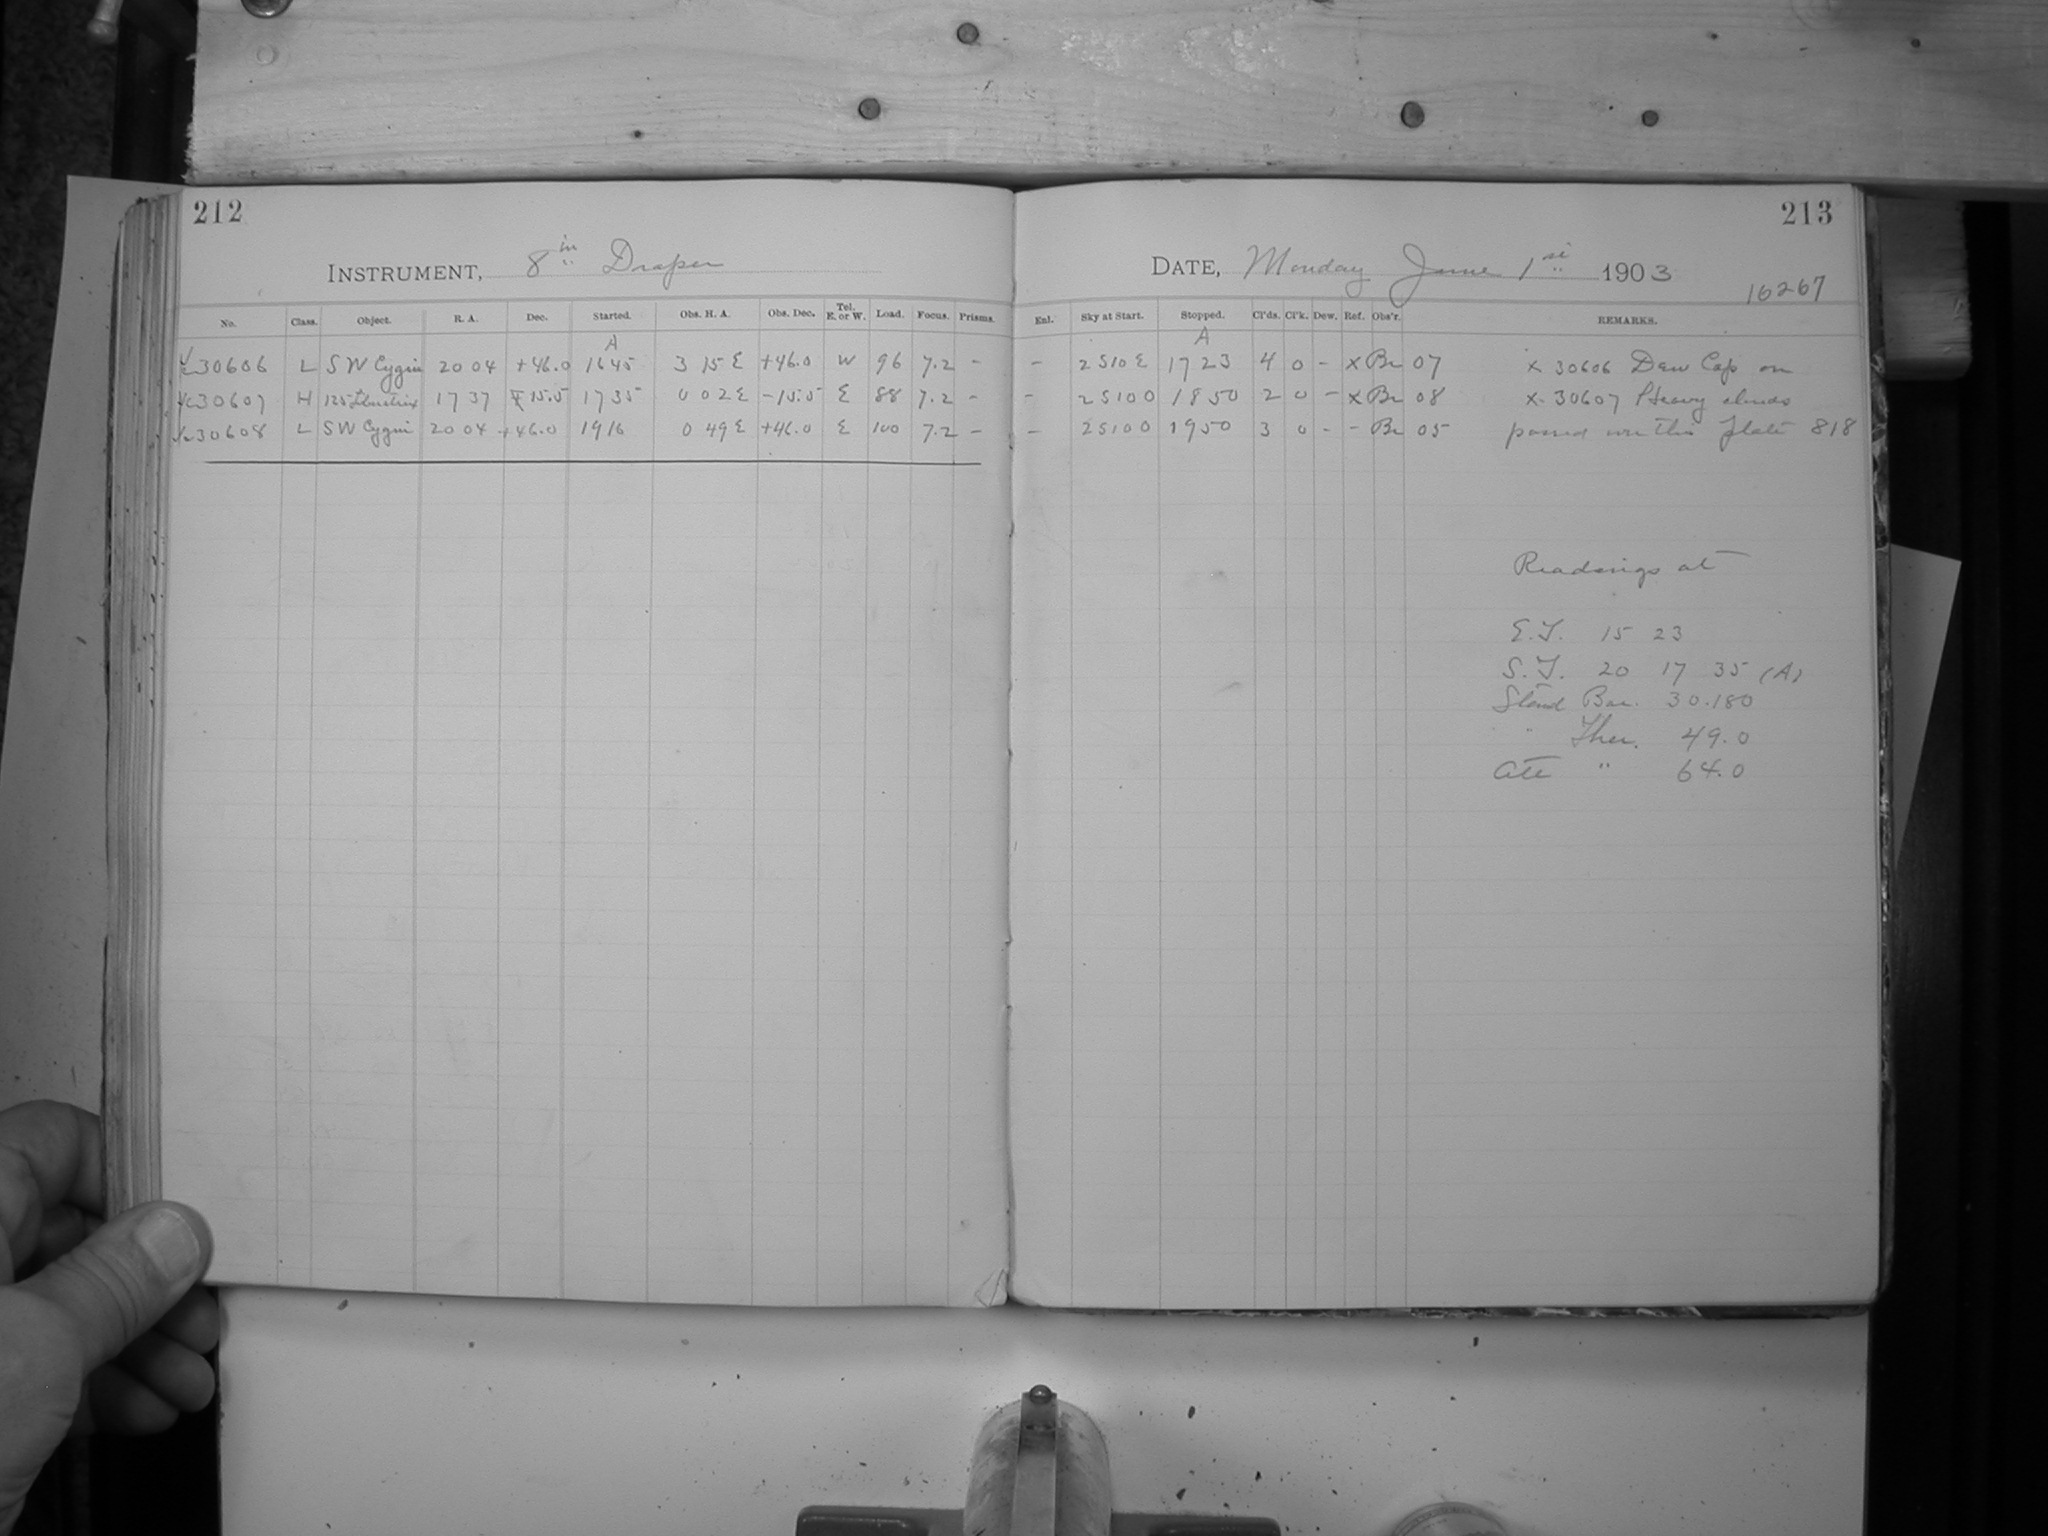 212
INSTRUMENT, 8 in Draper
No. Class. Object. R. A. Dec. Started. Obs. H. A. Obs. Dec. Tel. E. or W. Load. Focus. Prisms.
A
30606 L SW Cygni 20 04 +46.0 1645 3 15 E +46.0 W 96 7.2 -
30607 H 17 37 15.5 1735 0 02 E -15.5 E 88 7.2 -
30608 L SW Cygni 20 04 +46.0 1916 0 49 E +46.0 E 100 7.2 -
213
DATE, Monday June 1st 1903
16267
Enl. Sky at Start. Stopped. Cl'ds. Cl'k. Dew. Ref. Obs'r. REMARKS.
A
- 2 S10 E 1723 4 0 - x Br 07 x 30606 Dew Cap on
- 2 S100 1850 2 0 - x Br 08 x 30607 Heavy clouds
- 2 S100 1950 3 0 - - Br 05 passed over this plate 818
Readings at
E.T. 15 23
S.T. 20 17 35 (A)
Stand Bar. 30.180
" Ther. 49.0
Att " 64.0